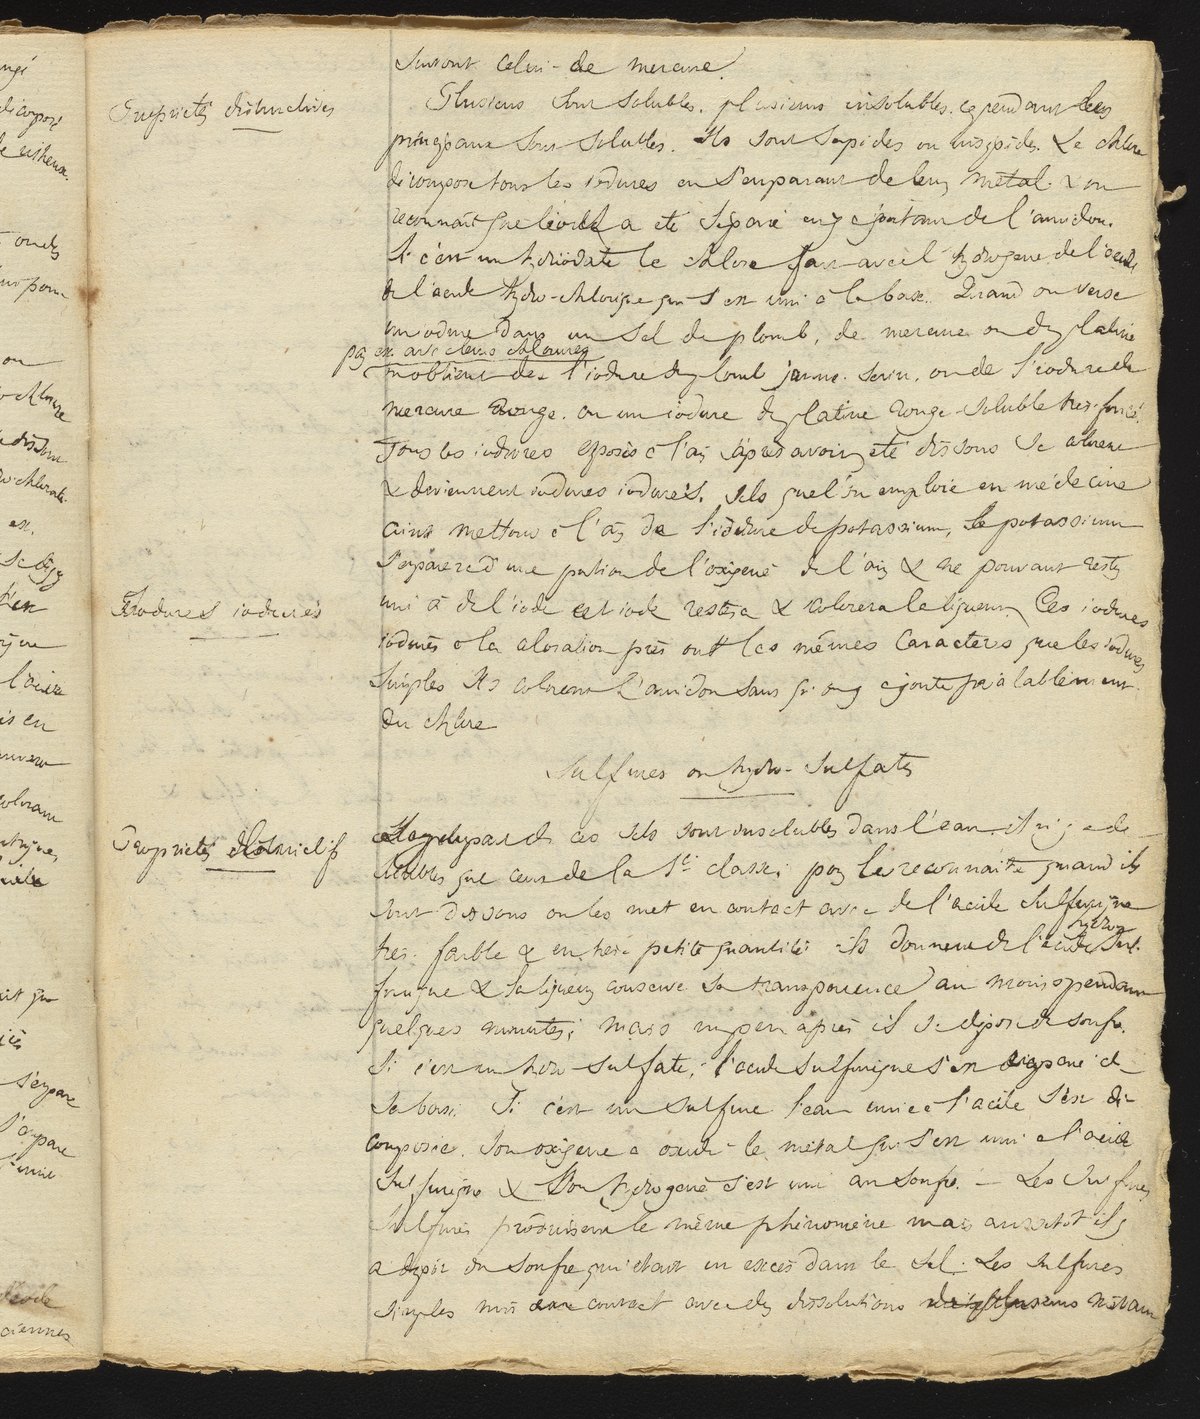 surtout celui-de mercure.
Propriétés distinctives
Plusieurs sont solubles. plusieurs insolubles. cependant les
principaux sont solubles. Ils sont sapides ou insipides. Le chlore
décompose tous les iodures en s'emparant de leur métal & on
reconnait que l'iode a été séparé en y ajoutant de l'amidon.
Si c'est un hydriodate le chlore fait avec l'hydrogene de l'acide
de l'acide hydro-chlorique qui s'est uni à la base. Quand on verse
un iodure dans un sel de plomb, de mercure ou de platine
par ex. avec leurs chlorures
on obtient de l'iodure de plomb jaune-serin, ou de l'iodure de
mercure rouge. ou un iodure de platine rouge-soluble tres-foncé.
Tous les iodures exposés à l'air après avoir été dissous se colorent
& deviennent iodures iodurés. tels que l'on emploie en médecine
ainsi mettons à l'air de l'iodure de potassium, le potassium
s'emparera d'une portion de l'oxigene de l'air & ne pouvant rester
uni à de l'iode cet iode restera & colorera la liqueur. Ces iodures
Iodures iodurés
iodurés à la coloration près ont les mêmes caracteres que les iodures
simples Ils colorent l'amidon sans qu'on y ajoute préalablement
du chlore
Sulfures ou hydro-sulfates
Propriétés distinctif
La plupart de ces sels sont insolubles dans l'eau il n'y a de
solubles que ceux de la 1re classe. pour les reconnaitre quand ils
sont dissous on les met en contact avec de l'acide sulfurique
tres-faible & en tres-petite quantité ils donnent de l'acide hydro sul-
furique & la liqueur conserve sa transparence au moins pendant
quelques minutes; mais un peu après il se dépose du soufre.
Si c'est un hydro-sulfate, l'acide sulfurique s'est emparé de
sa base. Si c'est un sulfure l'eau unie à l'acide s'est dé-
composée. Son oxigene a oxidé le métal qui s'est uni à l'acide
sulfurique & son hydrogene s'est uni au soufre. - Les sulfures
sulfurés produisent le même phénomène mais aussitôt il y
a dépôt du soufre qui etait en excès dans le sel. Les sulfures
simples mis en contact avec des dissolutions métall